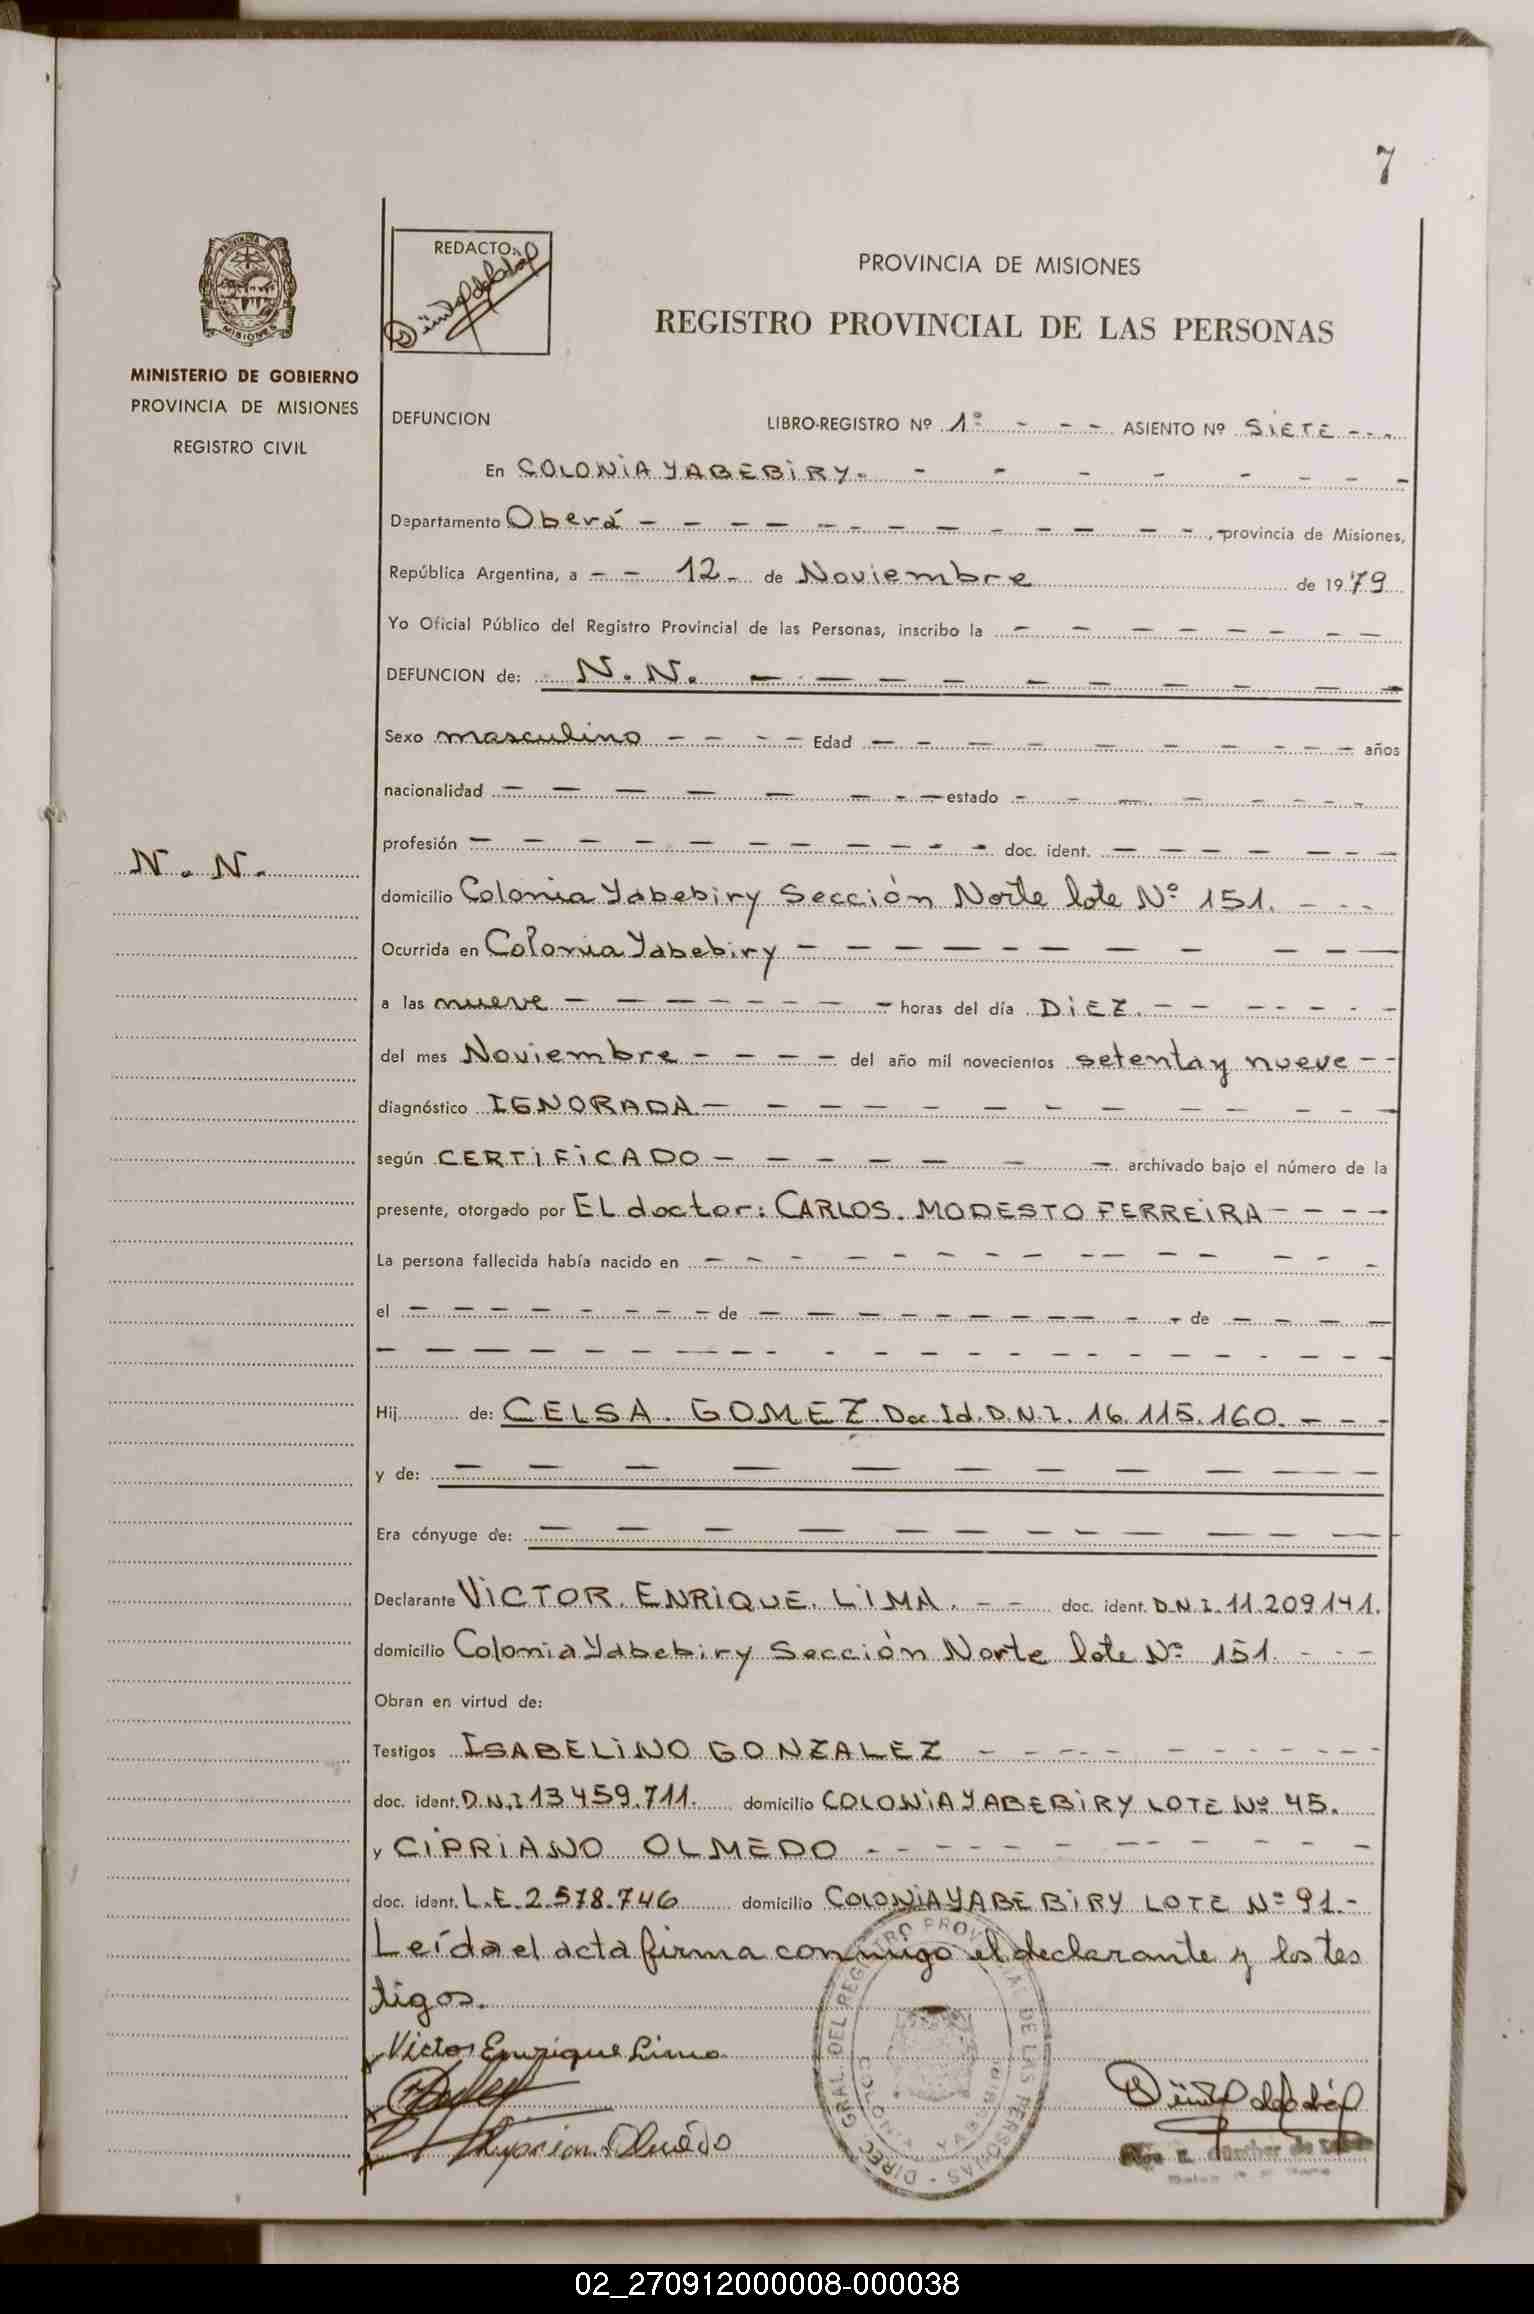 7
REDACTO
PROVINCIA DE MISIONES
REGISTRO PROVINCIAL DE LAS PERSONAS
MINISTERIO DE GOBIERNO
PROVINCIA DE MISIONES
REGISTRO CIVIL
DEFUNCION LIBRO-REGISTRO Nº 1º - - - ASIENTO Nº SIETE - - -
En COLONIA YABEBIRY. - - - - - - - - -
Departamento Oberá - - - - - - - - - - - - - , provincia de Misiones,
República Argentina, a - - 12 - de Noviembre de 1979
Yo Oficial Público del Registro Provincial de las Personas, inscribo la - - - - - - - -
DEFUNCION de: N. N. - - - - - - - - - -
Sexo masculino - - - - Edad - - - - - - - - - - - años
nacionalidad - - - - - - - - estado - - - - - - - -
profesión - - - - - - - - - - - - doc. ident. - - - - - - - -
N. N.
domicilio Colonia Yabebiry Sección Norte lote Nº 151. - - -
Ocurrida en Colonia Yabebiry - - - - - - - - - - - -
a las nueve - - - - - - - - - horas del día DIEZ. - - - - - - -
del mes Noviembre - - - - del año mil novecientos setenta y nueve - -
diagnóstico IGNORADA - - - - - - - - - - - - -
según CERTIFICADO - - - - - - - archivado bajo el número de la
presente, otorgado por EL doctor: CARLOS. MODESTO FERREIRA - - - -
La persona fallecida había nacido en - - - - - - - - - - - - - - -
el - - - - - - - - de - - - - - - - - - - - de - - - -
- - - - - - - - - - - - - - - - - - - - - - - -
Hij de: CELSA. GOMEZ. Doc. Id. D.N.I. 16.115.160. - - -
y de: - - - - - - - - - - - -
Era cónyuge de: - - - - - - - - - - - -
Declarante VICTOR. ENRIQUE. LIMA. - - doc. ident. D.N.I. 11.209.141.
domicilio Colonia Yabebiry Sección Norte lote Nº 151. - - -
Obran en virtud de:
Testigos ISABELINO GONZALEZ - - - - - - - - - - - -
doc. ident. D.N.I 13.459.711. domicilio COLONIA YABEBIRY LOTE Nº 45.
y CIPRIANO OLMEDO - - - - - - - - - - - -
doc. ident. L.E. 2.578.746 domicilio COLONIA YABEBIRY LOTE Nº 91. -
Leída el acta firma conmigo el declarante y los tes
tigos.
Victor Enrique Lima
DIREC. GRAL. DEL REGISTRO PROVINCIAL DE LAS PERSONAS
02_270912000008-000038